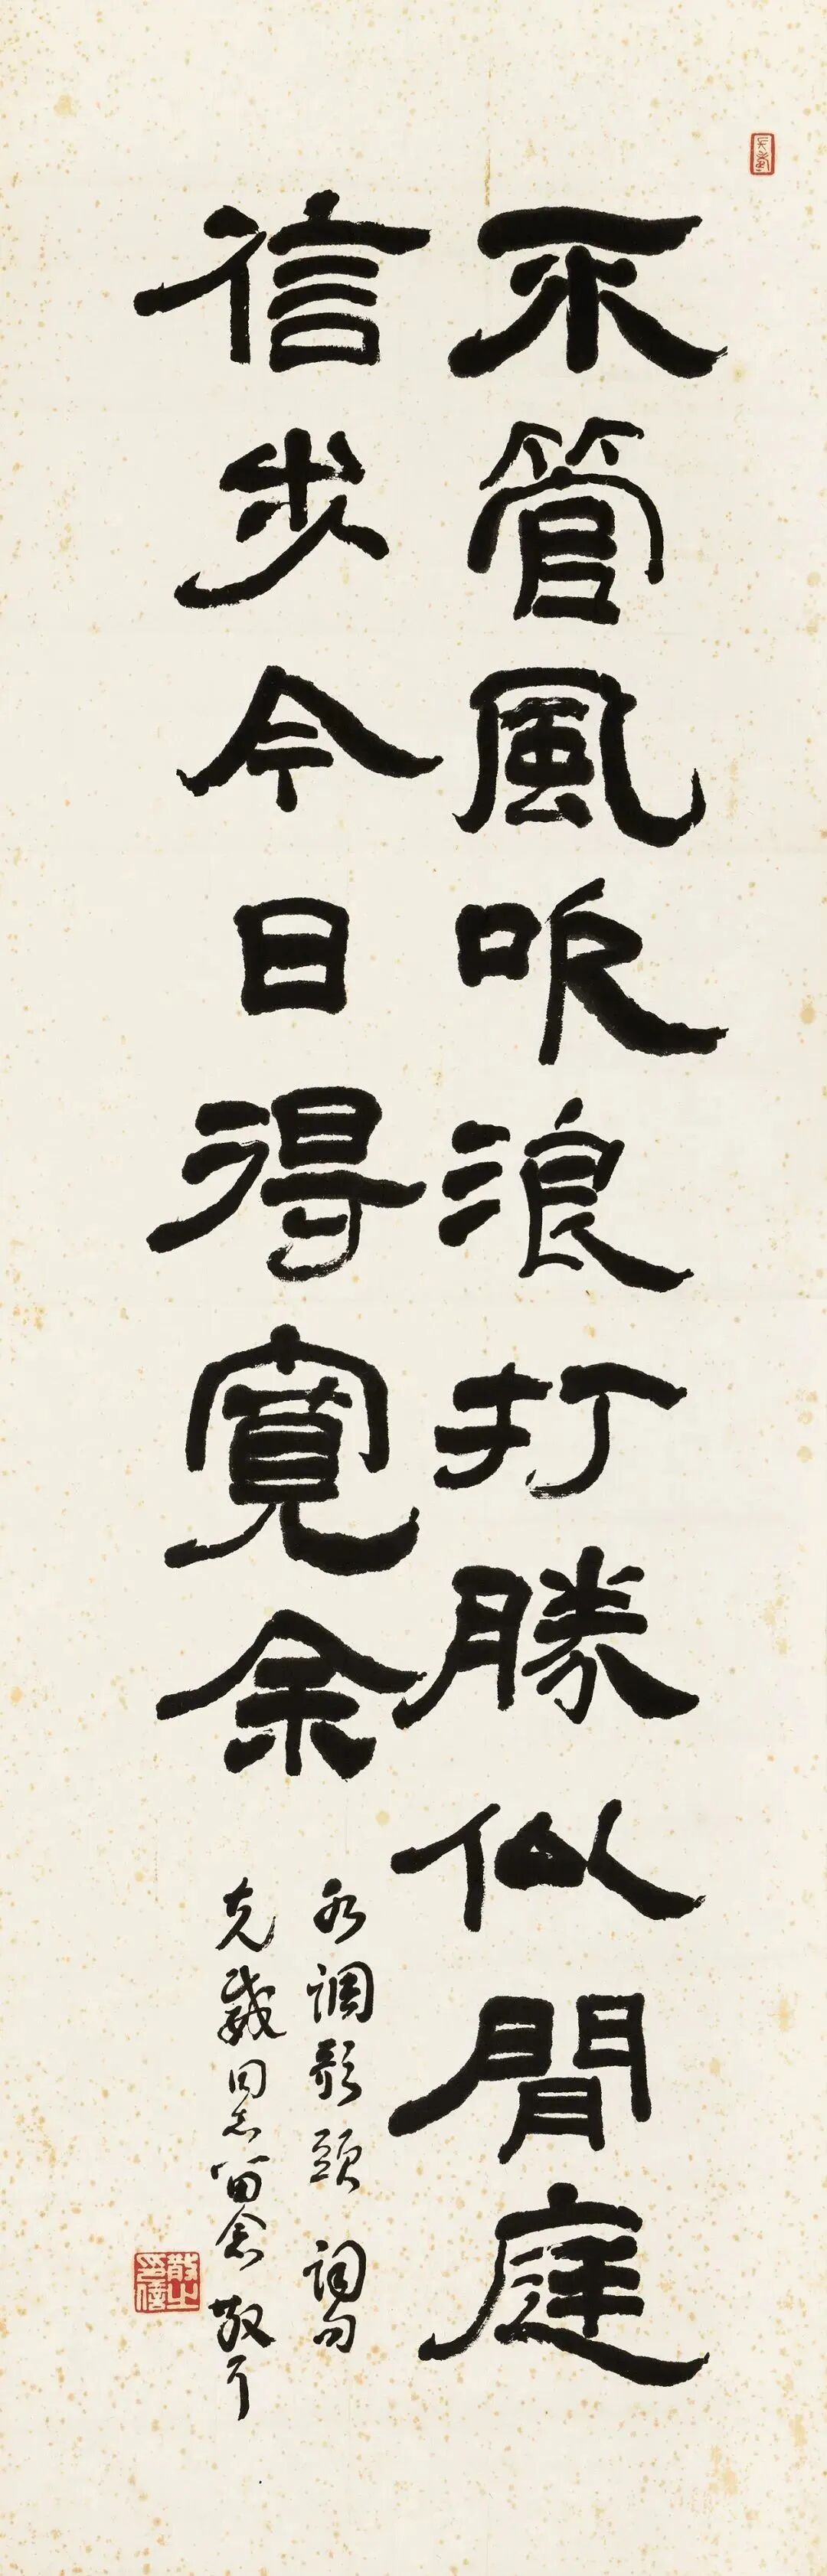 不管風吹浪打勝似閒庭
信步今日得寬余
水調歌頭 詞句
克同志留念 散耳
散之印信